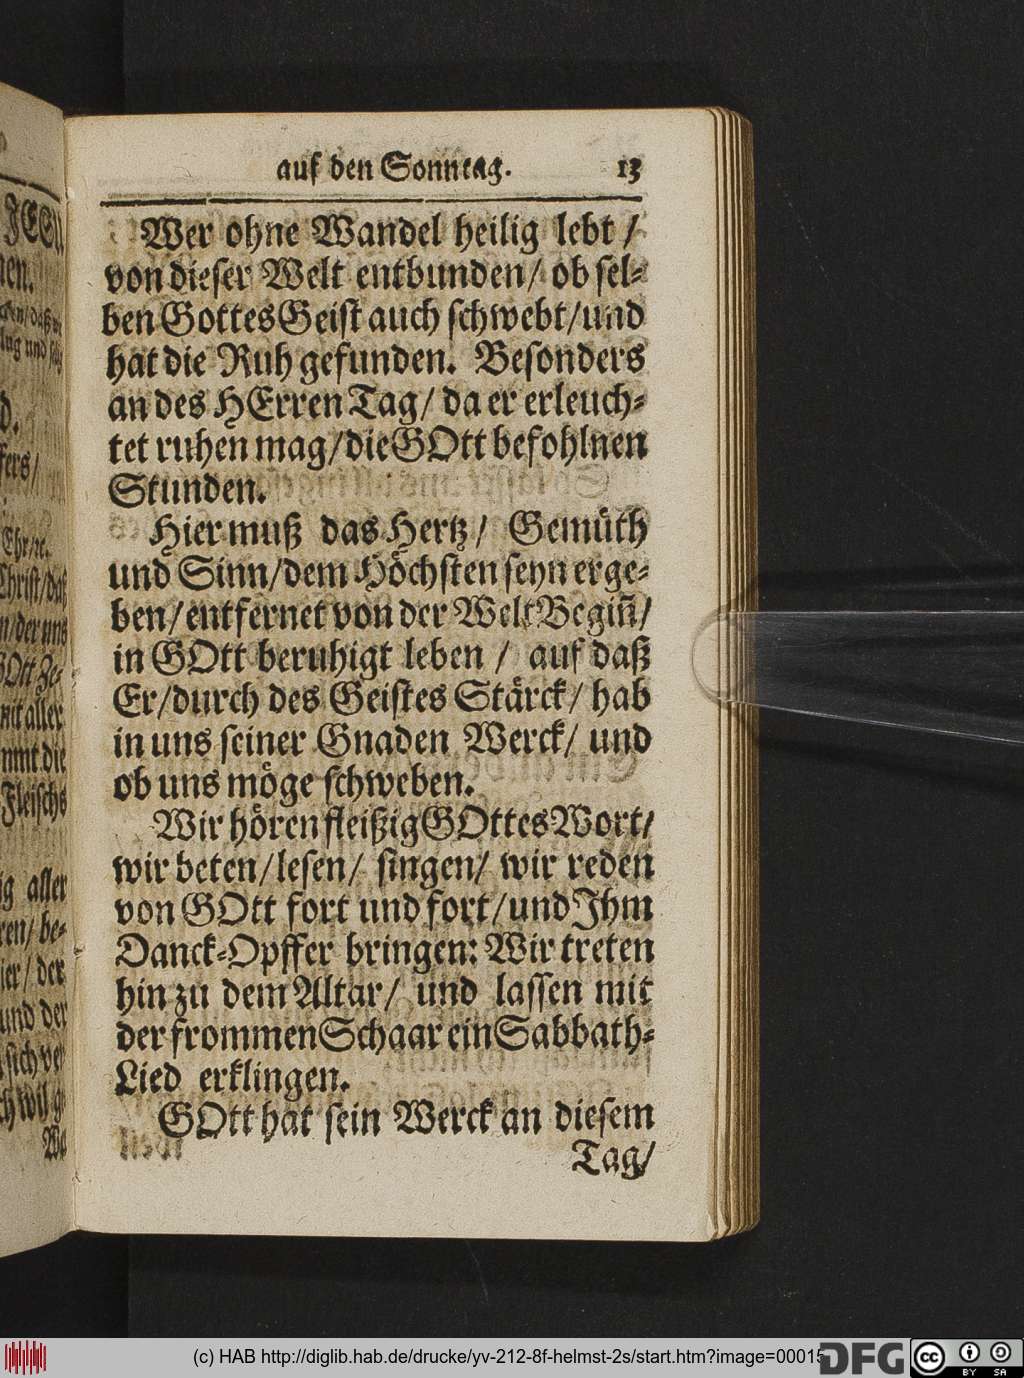 auf den Sonntag. 13
Wer ohne Wandel heilig lebt /
von dieser Welt entbunden/ ob sel⸗
ben Gottes Geist auch schwebt/und
hat die Ruh gefunden. Besonders
an des HErren Tag/ da er erleuch⸗
tet ruhen mag/die GOtt befohlnen
Stunden.
Hier muß das Hertz/ Gemüth
und Sinn/dem Höchsten seyn erge⸗
ben/entfernet von der Welt Begiñ/
in GOtt beruhigt leben / auf daß
Er/durch des Geistes Stärck/ hab
in uns seiner Gnaden Werck/ und
ob uns möge schweben.
Wir hören fleißig GOttes Wort/
wir beten/lesen/ singen/ wir reden
von GOtt fort und fort/und Ihm
Danck⸗Opffer bringen: Wir treten
hin zu dem Altar/ und lassen mit
der frommen Schaar ein Sabbath⸗
Lied erklingen.
GOtt hat sein Werck an diesem
Tag/
JESU
nen.
d.
fers/
Ehr/ꝛc.
Christ/daß
n/der uns
GOtt Ze⸗
mit aller
nimt die
Fleischs
ig aller
ren/ be⸗
ier/ der
und der
(c) HAB http://diglib.hab.de/drucke/yv-212-8f-helmst-2s/start.htm?image=00015
DFG
cc
BY SA